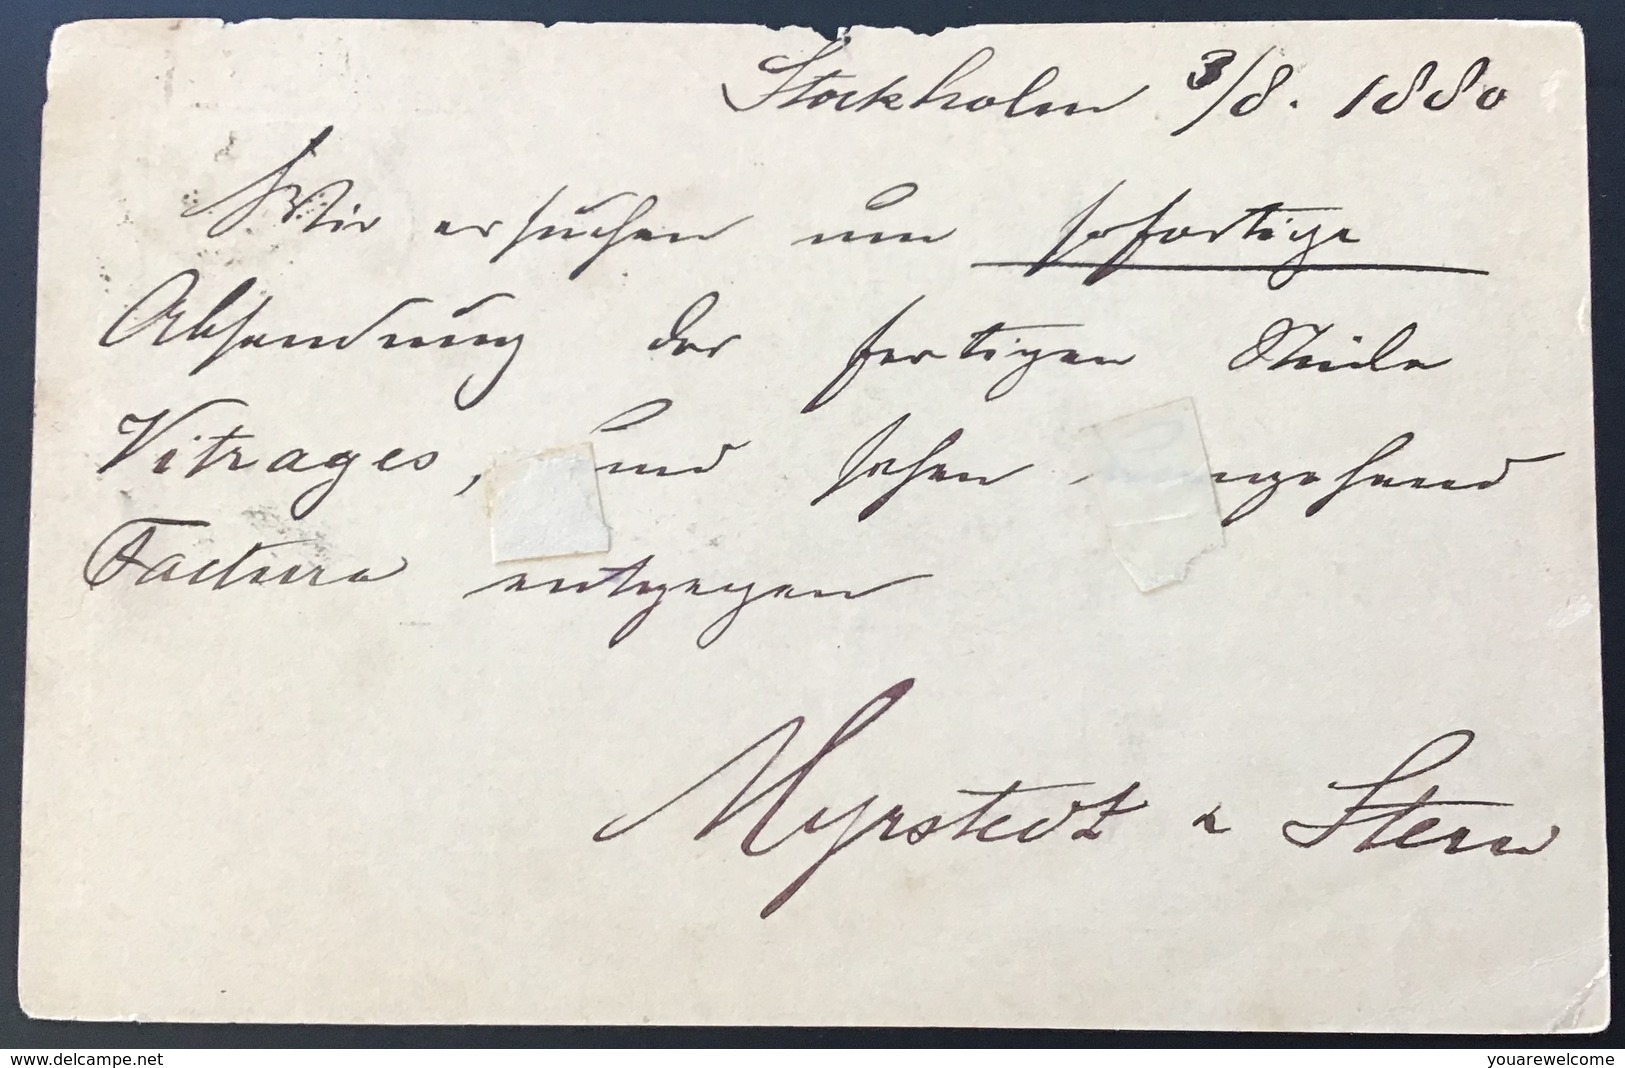 Stockholm 3/8. 1880
Wir ersuchen um sofortige
Absendung der fertigen Stücke
Vitrages, und sehen umgehend
Factura entgegen
Myrstedt & Stern
www.delcampe.net
youarewelcome